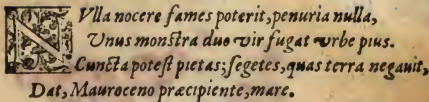 NVlla nocere fames poterit, penuria nulla,
Unus monstra duo vir fugat urbe pius.
Cuncta potest pietas; segetes, quas terra negauit,
Dat, Mauroceno præcipiente, mare.